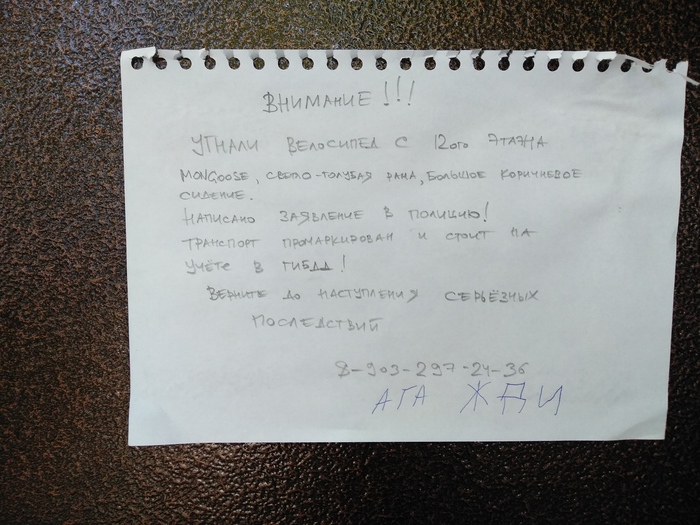 ВНИМАНИЕ!!!
УГНАЛИ ВЕЛОСИПЕД С 12ого ЭТАЖА
MONGOOSE, СВЕТЛО-ГОЛУБАЯ РАМА, БОЛЬШОЕ КОРИЧНЕВОЕ
СИДЕНИЕ.
НАПИСАНО ЗАЯВЛЕНИЕ В ПОЛИЦИЮ!
ТРАНСПОРТ ПРОМАРКИРОВАН И СТОИТ НА
УЧЁТЕ В ГИБДД!
ВЕРНИТЕ ДО НАСТУПЛЕНИЯ СЕРЬЁЗНЫХ
ПОСЛЕДСТВИЙ
8-903-297-24-36
АГА ЖДИ